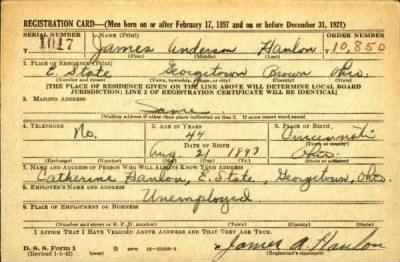 REGISTRATION CARD—(Men born on or after February 17, 1897 and on or before December 31, 1921)
SERIAL NUMBER 1. NAME (Print) ORDER NUMBER
1017 James Anderson Hanlon 10,850
(First) (Middle) (Last)
2. PLACE OF RESIDENCE (Print)
E. State Georgetown Brown Ohio.
(Number and street) (Town, township, village, or city) (County) (State)
[THE PLACE OF RESIDENCE GIVEN ON THE LINE ABOVE WILL DETERMINE LOCAL BOARD
JURISDICTION; LINE 2 OF REGISTRATION CERTIFICATE WILL BE IDENTICAL]
3. MAILING ADDRESS
Same
(Mailing address if other than place indicated on line 2. If same insert word same)
4. TELEPHONE 5. AGE IN YEARS 6. PLACE OF BIRTH
No. 44
DATE OF BIRTH (Town or county)
Aug 21 1897 Ohio.
(Exchange) (Number) (Mo.) (Day) (Yr.) (State or country)
7. NAME AND ADDRESS OF PERSON WHO WILL ALWAYS KNOW YOUR ADDRESS
Catherine Hanlon, E. State, Georgetown, Ohio
8. EMPLOYER'S NAME AND ADDRESS
Unemployed
9. PLACE OF EMPLOYMENT OR BUSINESS
(Number and street or R. F. D. number) (Town) (County) (State)
I AFFIRM THAT I HAVE VERIFIED ABOVE ANSWERS AND THAT THEY ARE TRUE.
D. S. S. Form 1
(Revised 1-1-42) (over) James A Hanlon
(Registrant's signature)